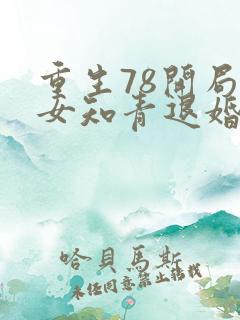 重生78開局
女知青退婚
哈貝馬斯
未經同意禁止轉載